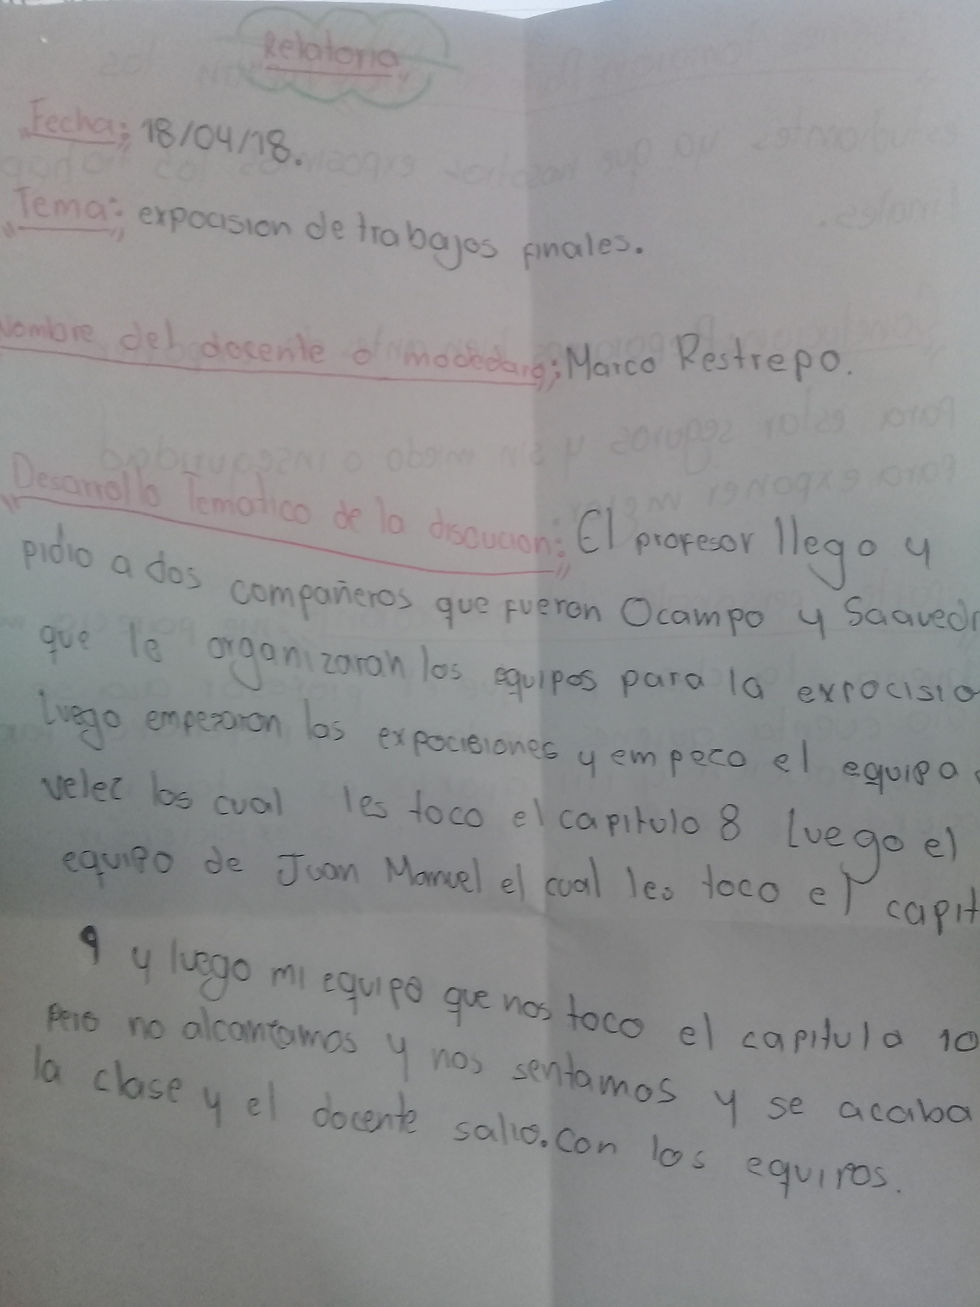 Relatoria
Fecha; 18/04/18.
Tema: expocision de trabajos finales.
Nombre del docente o; Marco Restrepo.
Desarrollo Tematico de la discucion; El profesor llego y
pidio a dos compañeros que fueron Ocampo y Saaved
que le organizaran los equipos para la exrocisio
luego empezaron las expocisiones y empeco el equipo
velez los cual les toco el capitulo 8 luego el
equipo de Juan Manuel el cual les toco el capit
9 y luego mi equipo que nos toco el capitulo 10
pero no alcantamos y nos sentamos y se acaba
la clase y el docente salio. con los equiros.